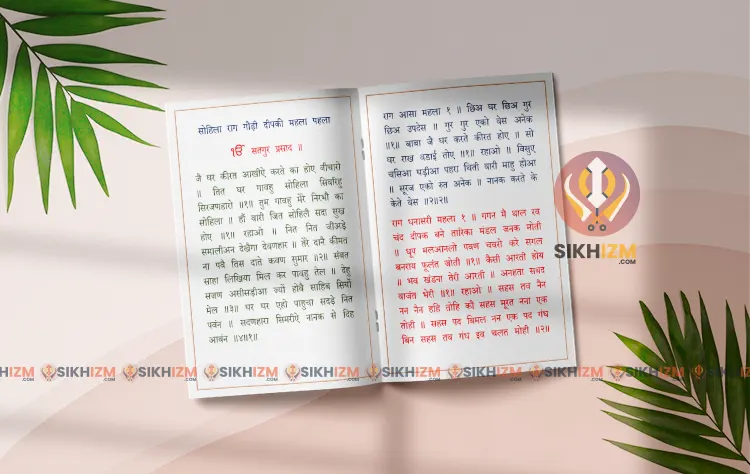 सोहिला राग गौड़ी दीपकी महला पहला
ੴ सतगुर प्रसाद ॥
जै घर कीरत आखीऐ करते का होए बीचारो
॥ तित घर गावहु सोहिला सिवरिहु
सिरजणहारो ॥१॥ तुम गावहु मेरे निरभौ का
सोहिला ॥ हौं वारी जित सोहिलै सदा सुख
होए ॥१॥ रहाओ ॥ नित नित जीअड़े
समालीअन देखैगा देवणहार ॥ तेरे दानै कीमत
ना पवै तिस दाते कवण सुमार ॥२॥ संबत
साहा लिखिया मिल कर पावहु तेल ॥ देहु
सजण असीसड़ीआ ज्यों होवै साहिब सियों
मेल ॥३॥ घर घर एहो पाहुचा सदड़े नित
पवंन ॥ सदणहारा सिमरीऐ नानक से दिह
आवंन ॥४॥१॥
राग आसा महला १ ॥ छिअ घर छिअ गुर
छिअ उपदेस ॥ गुर गुर एको वेस अनेक
॥१॥ बाबा जै घर करते कीरत होए ॥ सो
घर राख वडाई तोए ॥१॥ रहाओ ॥ विसुए
चसिआ घड़ीआ पहरा थिती वारी माहु होआ
॥ सूरज एको रुत अनेक ॥ नानक करते के
केते वेस ॥२॥२॥
राग धनासरी महला १ ॥ गगन मै थाल रव
चंद दीपक बने तारिका मंडल जनक मोती
॥ धूप मलआनलो पवण चवरो करे सगल
बनराय फूलंत जोती ॥१॥ कैसी आरती होय
॥ भव खंडना तेरी आरती ॥ अनहता सबद
वाजंत भेरी ॥१॥ रहाओ ॥ सहस तव नैन
नन नैन हहि तोहि कौ सहस मूरत नना एक
तोही ॥ सहस पद बिमल नन एक पद गंध
बिन सहस तव गंध इव चलत मोही ॥२॥
SIKHIZM
.COM
SIKHIZM.COM SIKHIZM.COM SIKHIZM.COM SIKHIZM.COM SIKHIZM.COM SIKHIZM.COM SIKHIZM.COM